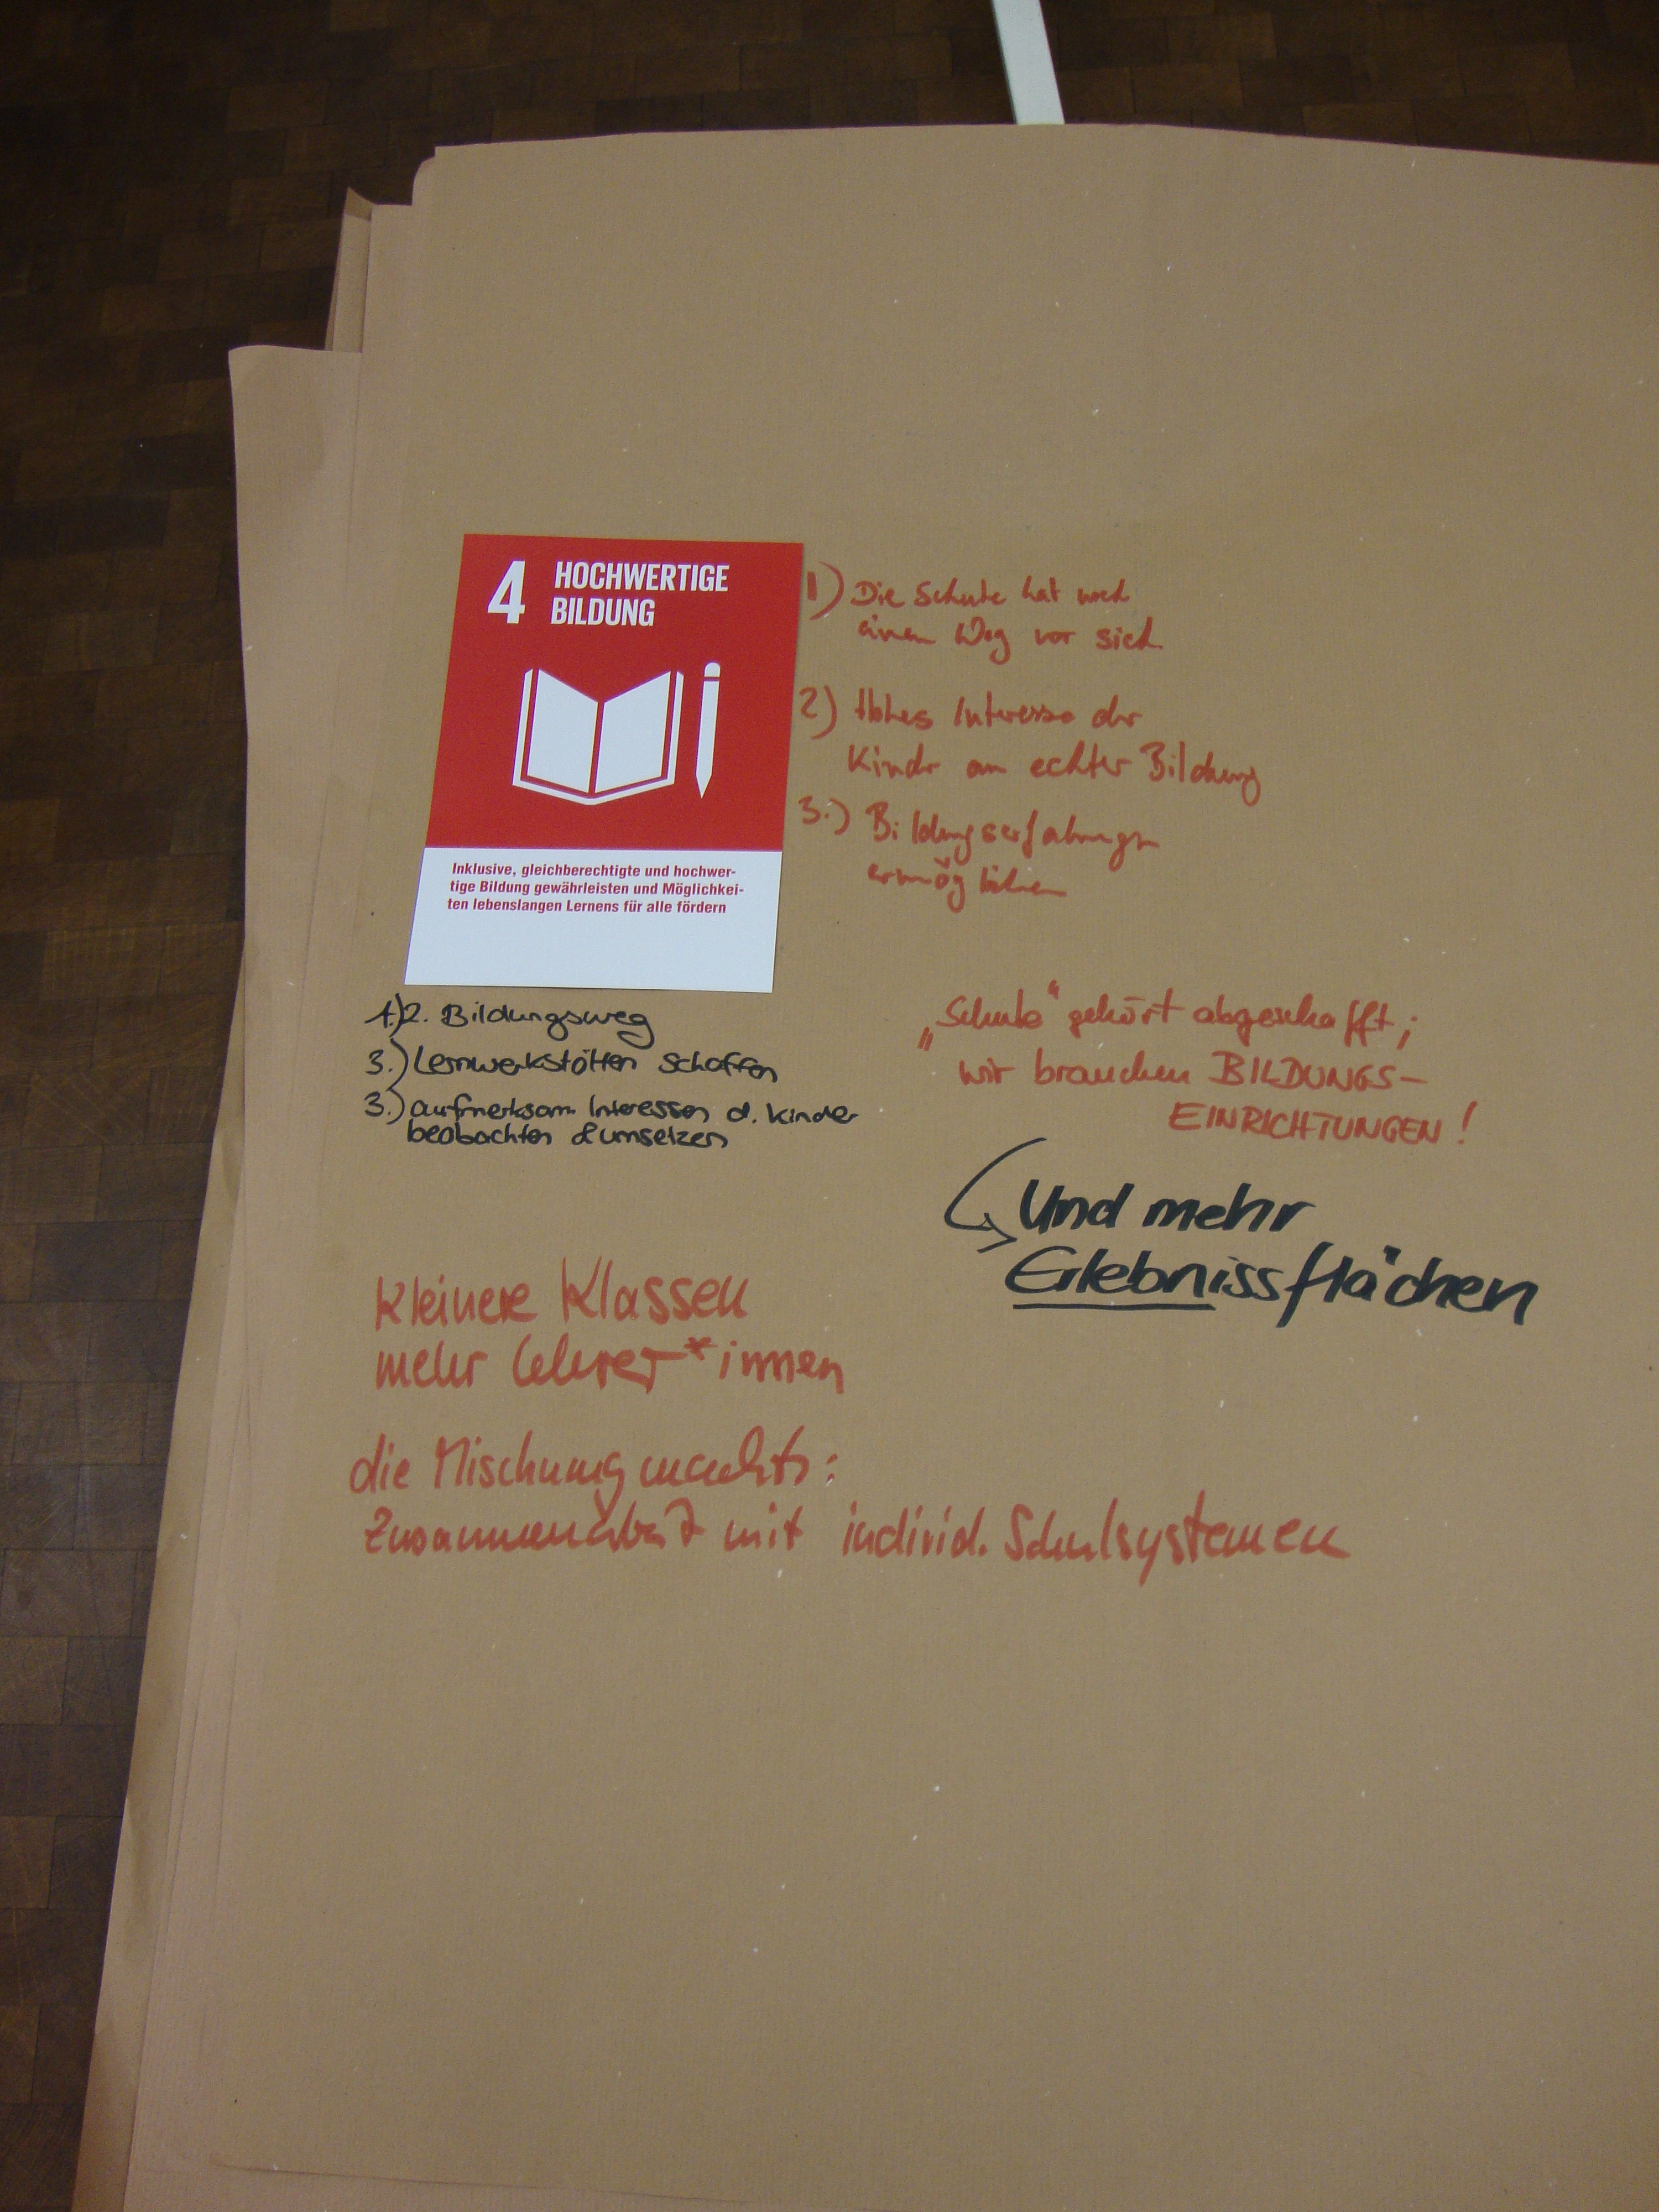 4 HOCHWERTIGE
BILDUNG
Inklusive, gleichberechtigte und hochwer-
tige Bildung gewährleisten und Möglichkei-
ten lebenslangen Lernens für alle fördern
1) Die Schule hat noch
einen Weg vor sich
2) Hohes Interesse der
Kinder an echter Bildung
3.) Bildungserfahrungen
ermöglichen
1.) 2. Bildungsweg
3.) Lernwerkstätten schaffen
3.) aufmerksam Interessen d. Kinder
beobachten & umsetzen
„Schule“ gehört abgeschafft;
wir brauchen BILDUNGS-
EINRICHTUNGEN!
Und mehr
Erlebnissflächen
Kleinere Klassen
mehr Lehrer*innen
die Mischung machts:
Zusammenarbeit mit individ. Schulsystemen